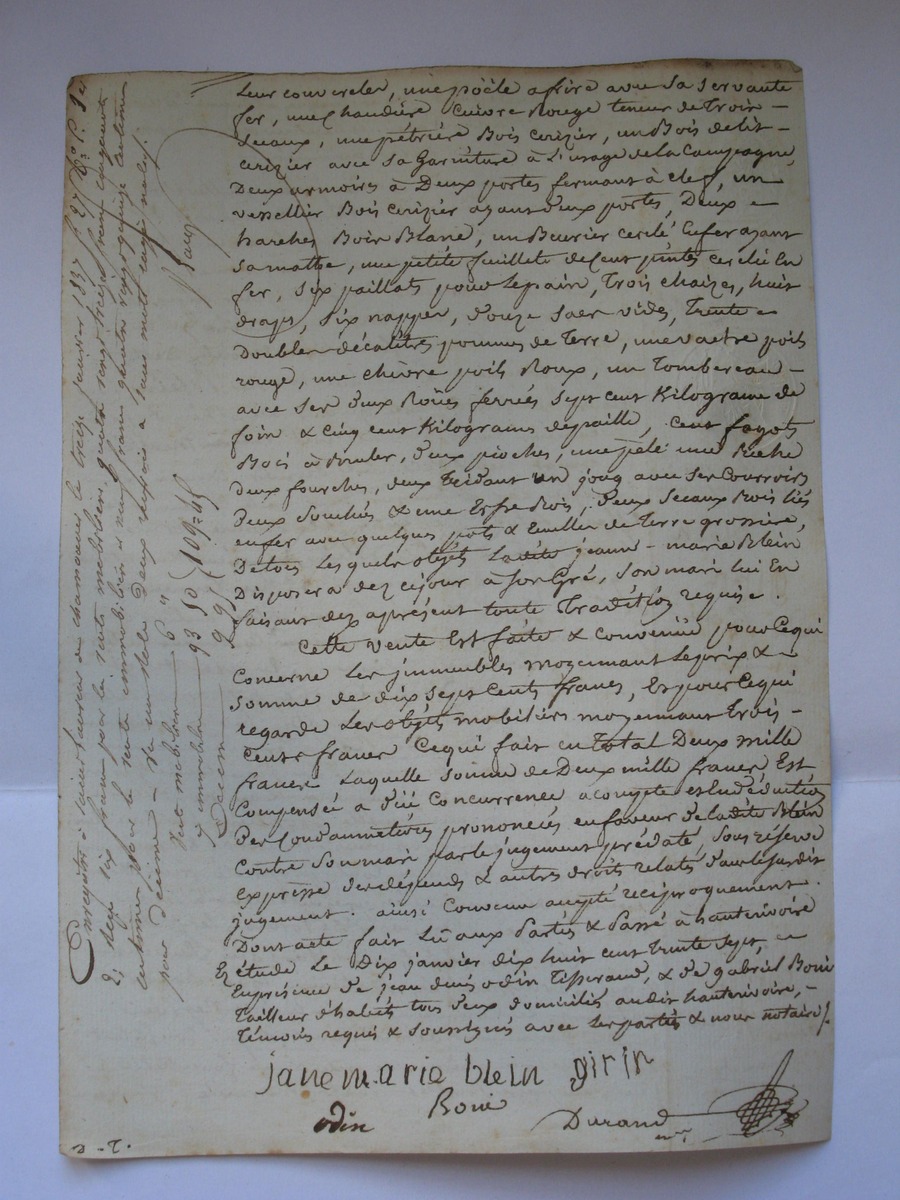 Leur couvercles, une poële a frire avec sa servante
fer, une chaudière cuivre Rouge teneur de trois
seaux, une pétrière Bois cerizier, un Bois de lit
cerizier avec sa Garniture à L'usage de la Campagne,
Deux armoires à Deux portes fermant à clef, un
vessellier Bois cerizier ayant deux portes, Deux
harches Bois Blanc, un Beurier cerclé En fer ayant
sa matte, une petite feuillete de Cent pintes cerclée En
fer, six paillats pour Lepain, trois chaizes, huit
draps, six nappes, douze sacs vides, trente
Doubles décalitres pommes de terre, une vache poils
rouge, une chèvre poils Roux, un Tombereau
avec ses deux Roües ferrées sept cent Kilograme de
foin & cinq cent Kilograms de paille, Cent fagots
Bois à Bruler, deux pioches, une pèle une Biche
Deux fourches, deux un joug avec ses Courroirs
Deux & une Bois, deux Seaux Bois liés
en fer avec quelques pots & de Terre grossière,
De tous Lesquels objets Ladite jeanne-marie Blein
Disposera dez cejour à son Gré, Son mari lui En
faisant dez aprésent toute Tradition requise.
Cette vente Est faite & convenüe pour Cequi
Concerne Les jmmeubles moyennant Leprix &
Somme de dix sept Cents francs, Et pour Cequi
regarde Les objets mobiliers moyennant trois
Cents francs Cequi fait en total Deux mille
francs Laquelle Somme de Deux mille francs Est
Compensée a dûë Concurrence àcompte et Endéduction
Des Condamnations prononcées enfaveur De ladite Blein
Contre Son mari par le jugement prédaté, Sous réserve
Expresse des dépends & autres droits relatés dans le susdit
jugement. ainsi Convenu accepté réciproquement.
Dont acte fait Lû aux Parties & Passé à hauterivoire
En étude Le Dix janvier dix huit cent trente sept,
En présence de jean denis odin Tisserand, & de gabriel Boni
Tailleur d'habits tous deux domiciliés audit hauterivoire,
Témoins requis & Soussignés avec Les parties & nous notaire /.
jane marie blein girin
odin Boni Durand
D - T.
Enregistré à Saint Laurent de chamousset le treize janvier 1837 f° 27 R° C.
reçu six francs pour la vente mobilière, quatre vingt treize francs cinquante
centimes pour la vente immobilière et neuf francs quatre vingt quinze centimes
pour décime
vente mobilière 6 "
jmmobilière 93 50
Décime 9 95
109=45